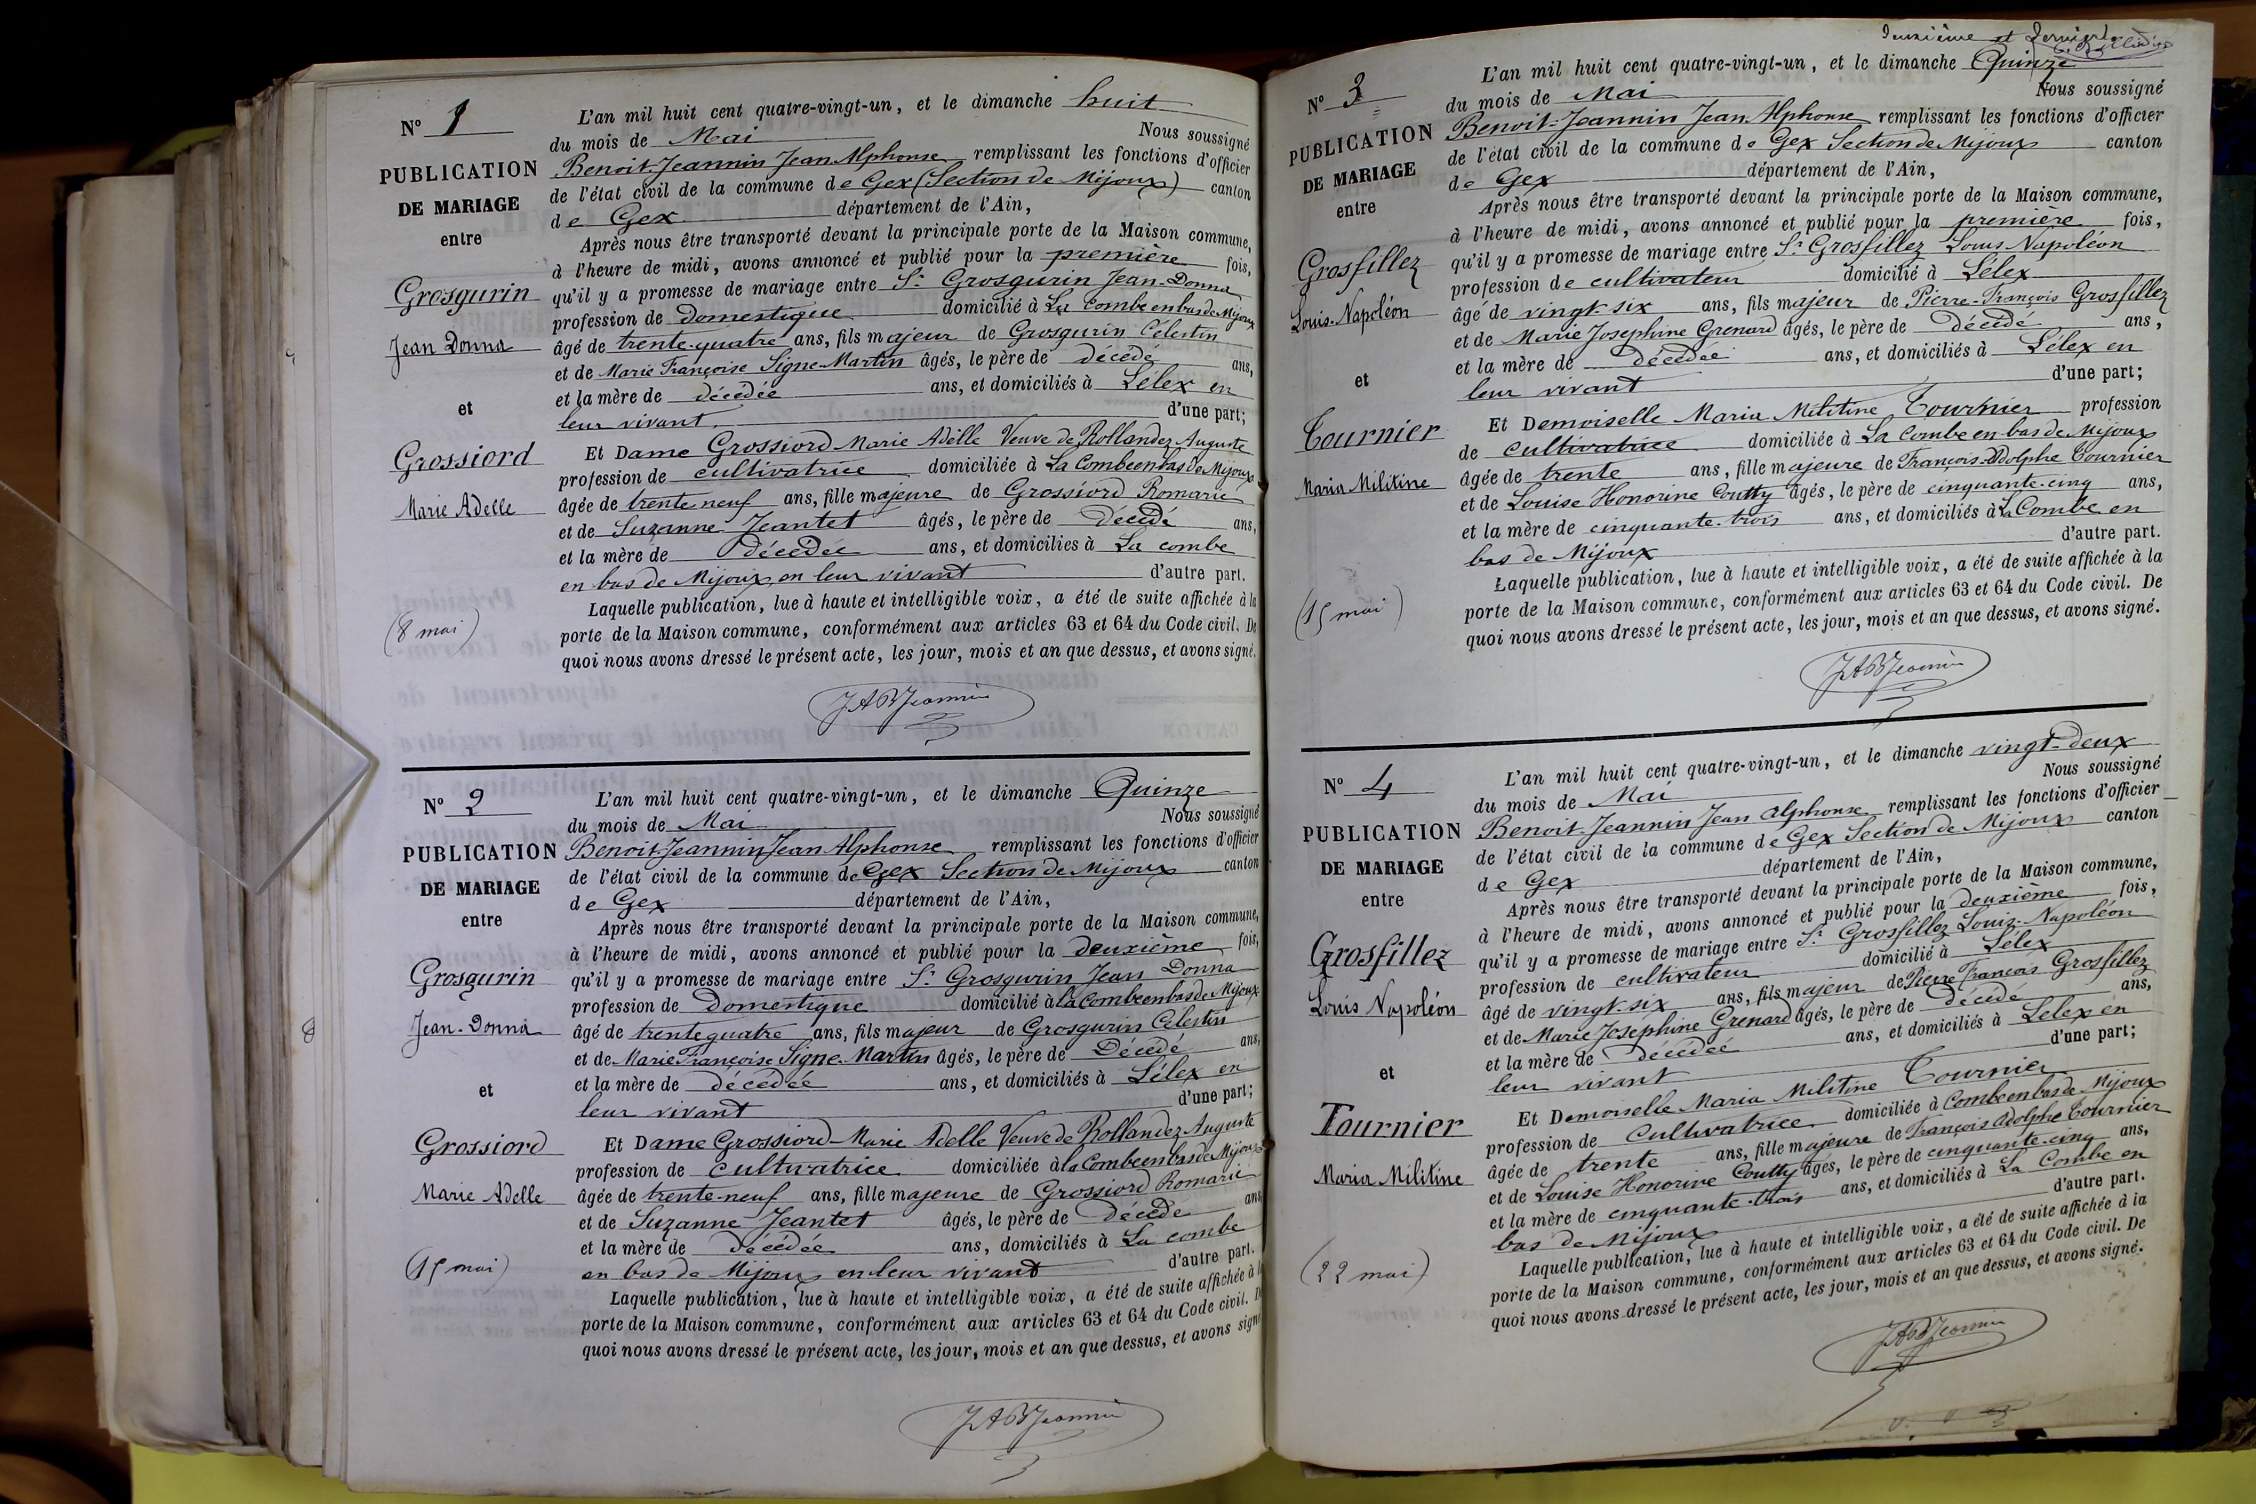 N° 1
PUBLICATION
DE MARIAGE
entre
Grosgurin
Jean Donna
et
Grossiord
Marie Adelle
(8 mai)
L'an mil huit cent quatre-vingt-un, et le dimanche huit
du mois de Mai Nous soussigné
Benoit-Jeannin Jean Alphonse remplissant les fonctions d'officier
de l'état civil de la commune de Gex (Section de Mijoux) canton
de Gex département de l'Ain,
Après nous être transporté devant la principale porte de la Maison commune,
à l'heure de midi, avons annoncé et publié pour la première fois,
qu'il y a promesse de mariage entre Sr Grosgurin Jean-Donna
profession de domestique domicilié à La Combe en bas de Mijoux
âgé de trente-quatre ans, fils majeur de Grosgurin Célestin
et de Marie Françoise Signe-Martin âgés, le père de décédé ans,
et la mère de décédée ans, et domiciliés à Lélex en
leur vivant. d'une part;
Et Dame Grossiord Marie Adèlle Veuve de Rollandez Auguste
profession de cultivatrice domiciliée à La Combe en bas de Mijoux
âgée de trente neuf ans, fille majeure de Grossiord Romaric
et de Suzanne Jeantet âgés, le père de Décédé ans,
et la mère de Décédée ans, et domiciliés à La combe
en bas de Mijoux en leur vivant d'autre part.
Laquelle publication, lue à haute et intelligible voix, a été de suite affichée à la
porte de la Maison commune, conformément aux articles 63 et 64 du Code civil. De
quoi nous avons dressé le présent acte, les jour, mois et an que dessus, et avons signé.
JABJeannin
N° 2
PUBLICATION
DE MARIAGE
entre
Grosgurin
Jean-Donna
et
Grossiord
Marie Adelle
(15 mai)
L'an mil huit cent quatre-vingt-un, et le dimanche Quinze
du mois de Mai Nous soussigné
Benoit-Jeannin Jean Alphonse remplissant les fonctions d'officier
de l'état civil de la commune de Gex Section de Mijoux canton
de Gex département de l'Ain,
Après nous être transporté devant la principale porte de la Maison commune,
à l'heure de midi, avons annoncé et publié pour la deuxième fois,
qu'il y a promesse de mariage entre Sr Grosgurin Jean Donna
profession de Domestique domicilié à la Combe en bas de Mijoux
âgé de trente quatre ans, fils majeur de Grosgurin Célestin
et de Marie Françoise Signe-Martin âgés, le père de Décédé ans,
et la mère de décédée ans, et domiciliés à Lélex en
leur vivant d'une part;
Et Dame Grossiord-Marie Adelle Veuve de Rollandez Auguste
profession de cultivatrice domiciliée à la Combe en bas de Mijoux
âgée de trente-neuf ans, fille majeure de Grossiord Romaric
et de Suzanne Jeantet âgés, le père de décédé ans
et la mère de Décédée ans, domiciliés à La combe
en bas de Mijoux en leur vivant d'autre part.
Laquelle publication, lue à haute et intelligible voix, a été de suite affichée à
porte de la Maison commune, conformément aux articles 63 et 64 du Code civil. D
quoi nous avons dressé le présent acte, les jour, mois et an que dessus, et avons signé
JABJeannin
Deuxième et dernier
N° 3
PUBLICATION
DE MARIAGE
entre
Grosfillez
Louis-Napoléon
et
Tournier
Maria Militine
(15 mai)
L'an mil huit cent quatre-vingt-un, et le dimanche Quinze
du mois de Mai Nous soussigné
Benoit-Jeannin Jean-Alphonse remplissant les fonctions d'officier
de l'état civil de la commune de Gex Section de Mijoux canton
de Gex département de l'Ain,
Après nous être transporté devant la principale porte de la Maison commune,
à l'heure de midi, avons annoncé et publié pour la première fois,
qu'il y a promesse de mariage entre Sr Grosfillez Louis Napoléon
profession de cultivateur domicilié à Lélex
âgé de vingt-six ans, fils majeur de Pierre-François Grosfillez
et de Marie Josephine Grenard âgés, le père de décédé ans,
et la mère de décédée ans, et domiciliés à Lélex en
leur vivant d'une part;
Et Demoiselle Maria Militine Tournier profession
de cultivatrice domiciliée à La Combe en bas de Mijoux
âgée de trente ans, fille majeure de François-Adolphe Tournier
et de Louise Honorine Coutty âgés, le père de cinquante-cinq ans,
et la mère de cinquante-trois ans, et domiciliés à La Combe en
bas de Mijoux d'autre part.
Laquelle publication, lue à haute et intelligible voix, a été de suite affichée à la
porte de la Maison commune, conformément aux articles 63 et 64 du Code civil. De
quoi nous avons dressé le présent acte, les jour, mois et an que dessus, et avons signé.
JABJeannin
N° 4
PUBLICATION
DE MARIAGE
entre
Grosfillez
Louis Napoléon
et
Tournier
Maria Militine
(22 mai)
L'an mil huit cent quatre-vingt-un, et le dimanche vingt-deux
du mois de Mai Nous soussigné
Benoit-Jeannin Jean Alphonse remplissant les fonctions d'officier
de l'état civil de la commune de Gex Section de Mijoux canton
de Gex département de l'Ain,
Après nous être transporté devant la principale porte de la Maison commune,
à l'heure de midi, avons annoncé et publié pour la deuxième fois,
qu'il y a promesse de mariage entre Sr Grosfillez Louis-Napoléon
profession de cultivateur domicilié à Lélex
âgé de vingt-six ans, fils majeur de Pierre François Grosfillez
et de Marie Joséphine Grenard âgés, le père de décédé ans,
et la mère de décédée ans, et domiciliés à Lélex en
leur vivant d'une part;
Et Demoiselle Maria Militine Tournier
profession de Cultivatrice domiciliée à Combe en bas de Mijoux
âgée de trente ans, fille majeure de François Adolphe Tournier
et de Louise Honorine Coutty âgés, le père de cinquante-cinq ans,
et la mère de cinquante-trois ans, et domiciliés à La Combe en
bas de Mijoux d'autre part.
Laquelle publication, lue à haute et intelligible voix, a été de suite affichée à la
porte de la Maison commune, conformément aux articles 63 et 64 du Code civil. De
quoi nous avons dressé le présent acte, les jour, mois et an que dessus, et avons signé.
JABJeannin